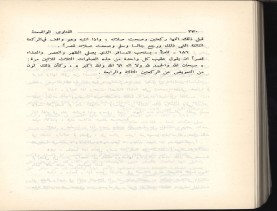 ٣٧٠ الفتاوى الواضحة
قبل ذلك انها ركعتين وصحت صلاته ، واذا انتبه وهو واقف في الركعة
الثالثة الغى ذلك ورجع جالسا وسلم وصحت صلاته قصراً .
١٨٦ - يستحب للمسافر الذي يصلي الظهر والعصر والعشاء
قصراً أن يقول عقيب كل واحدة من هذه الصلوات الثلاث ثلاثين مرة :
« سبحان الله والحمد لله ولا اله الا الله والله اكبر » ، وكأن ذلك نوع
من التعويض عن الركعتين الثالثة والرابعة .